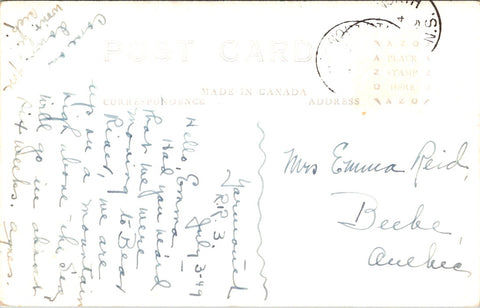 POST CARD
MADE IN CANADA
CORRESPONDENCE
ADDRESS
AZO
PLACE
STAMP
HERE
AZO
NORTH
N.S.
Yarmouth
R.R. 3
July 3-49
Hello, Emma
Had you heard
that we were
moving to Bear
River, we are
up on a mountain
high above the sea
will go in about
six weeks,
Come on
down
Mrs Emma Reid,
Beebe,
Quebec